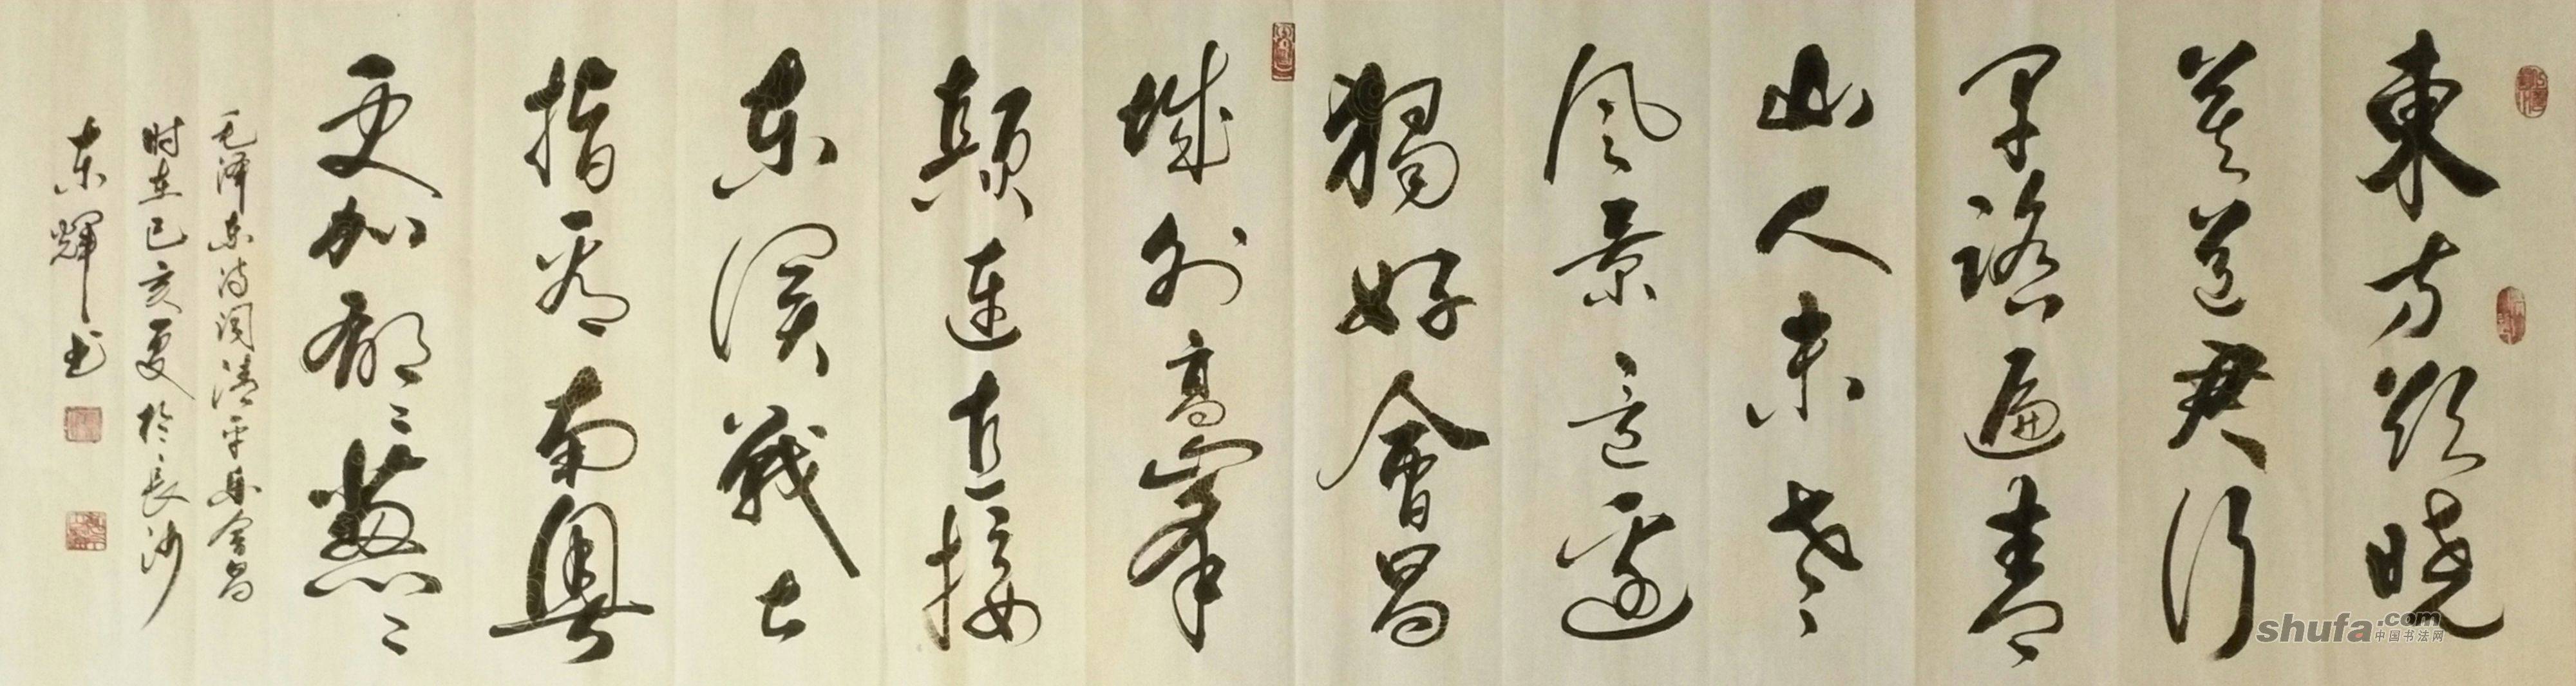 東方欲曉
莫道君行
早踏遍青
山人未老
風景這邊
獨好會昌
城外高峯
顛連直接
东溟戰士
指看南粵
更加郁々葱々
毛泽东诗词清平乐會昌
时在己亥夏於长沙
东輝书
shufa.com
中国书法网